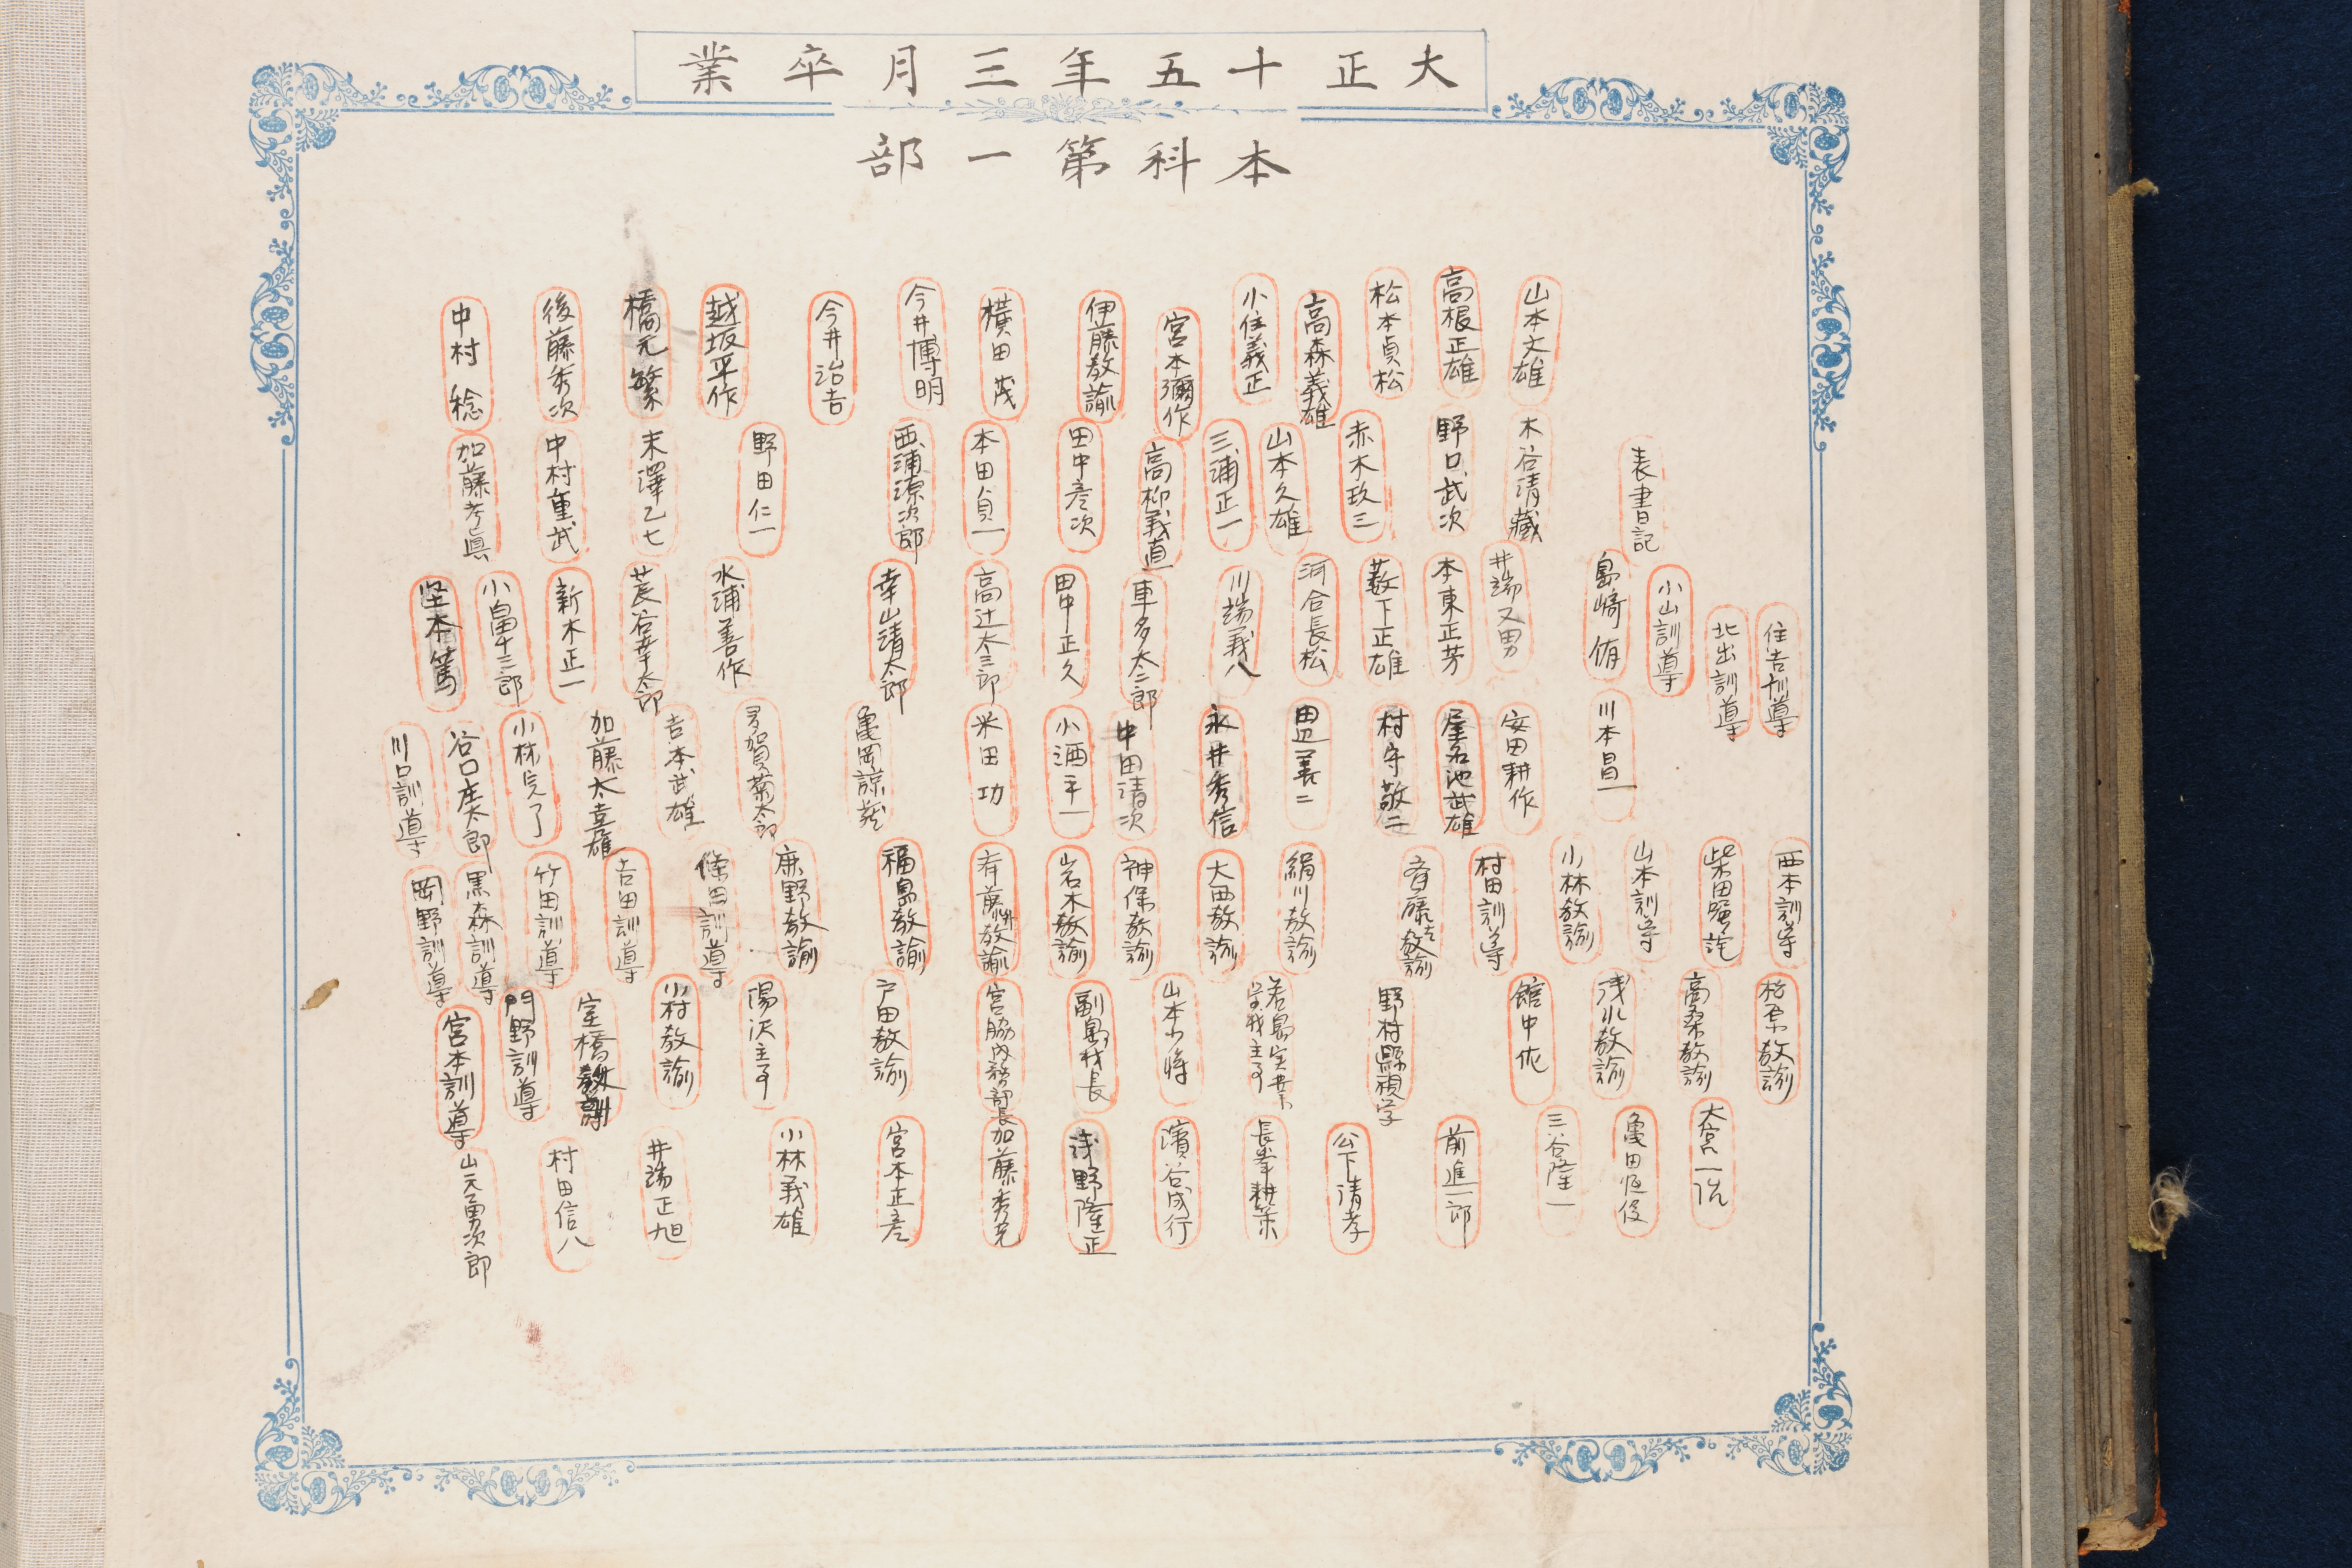 大正十五年三月卒業
本科第一部
山本文雄
高根正雄
松本貞松
高森義雄
小住義正
宮本彌作
伊藤教諭
横田茂
今井博明
今井治吉
越坂平作
橋元繁
後藤秀次
中村稔
表書記
木谷清藏
野口武次
赤木玖三
山本久雄
三浦正一
高柳義直
田中彦次
本田貞一
西浦源次郎
野田仁一
末澤乙七
中村重武
加藤考眞
住吉訓導
北出訓導
小山訓導
島崎侑
井端又男
本東正芳
薮下正雄
河合長松
川端義八
車多太二郎
田中正久
高辻太三郎
幸山清太郎
水浦善作
莨谷幸太郎
新木正一
小畠十三郎
坚本篤
川本昌一
安田耕作
屋名池武雄
村守敬二
田辺善二
永井秀信
中田清次
小酒平一
米田功
亀岡諒蔵
多賀菊太郎
吉本武雄
加藤太喜雄
小林完了
谷口庄太郎
川口訓導
西本訓導
山本訓導
小林教諭
村田訓導
斉藤吉教諭
絹川教諭
大西教諭
神保教諭
岩木教諭
福島教諭
鹿野教諭
條田訓導
吉田訓導
竹田訓導
黒森訓導
岡野訓導
高桑教諭
浅小教諭
館中佐
野村縣視学
若島実業学校主事
山本少将
副島校長
宮脇内務部長
戸田教諭
陽沢主事
小村教諭
室橋訓
門野訓導
宮本訓導
大宮一侊
亀田恒俊
三谷隆一
前進一郎
公下清孝
長峯耕策
濱谷成行
浅野隆正
加藤秀克
宮本正彦
小林義雄
井端正旭
村田信八
山元勇次郎